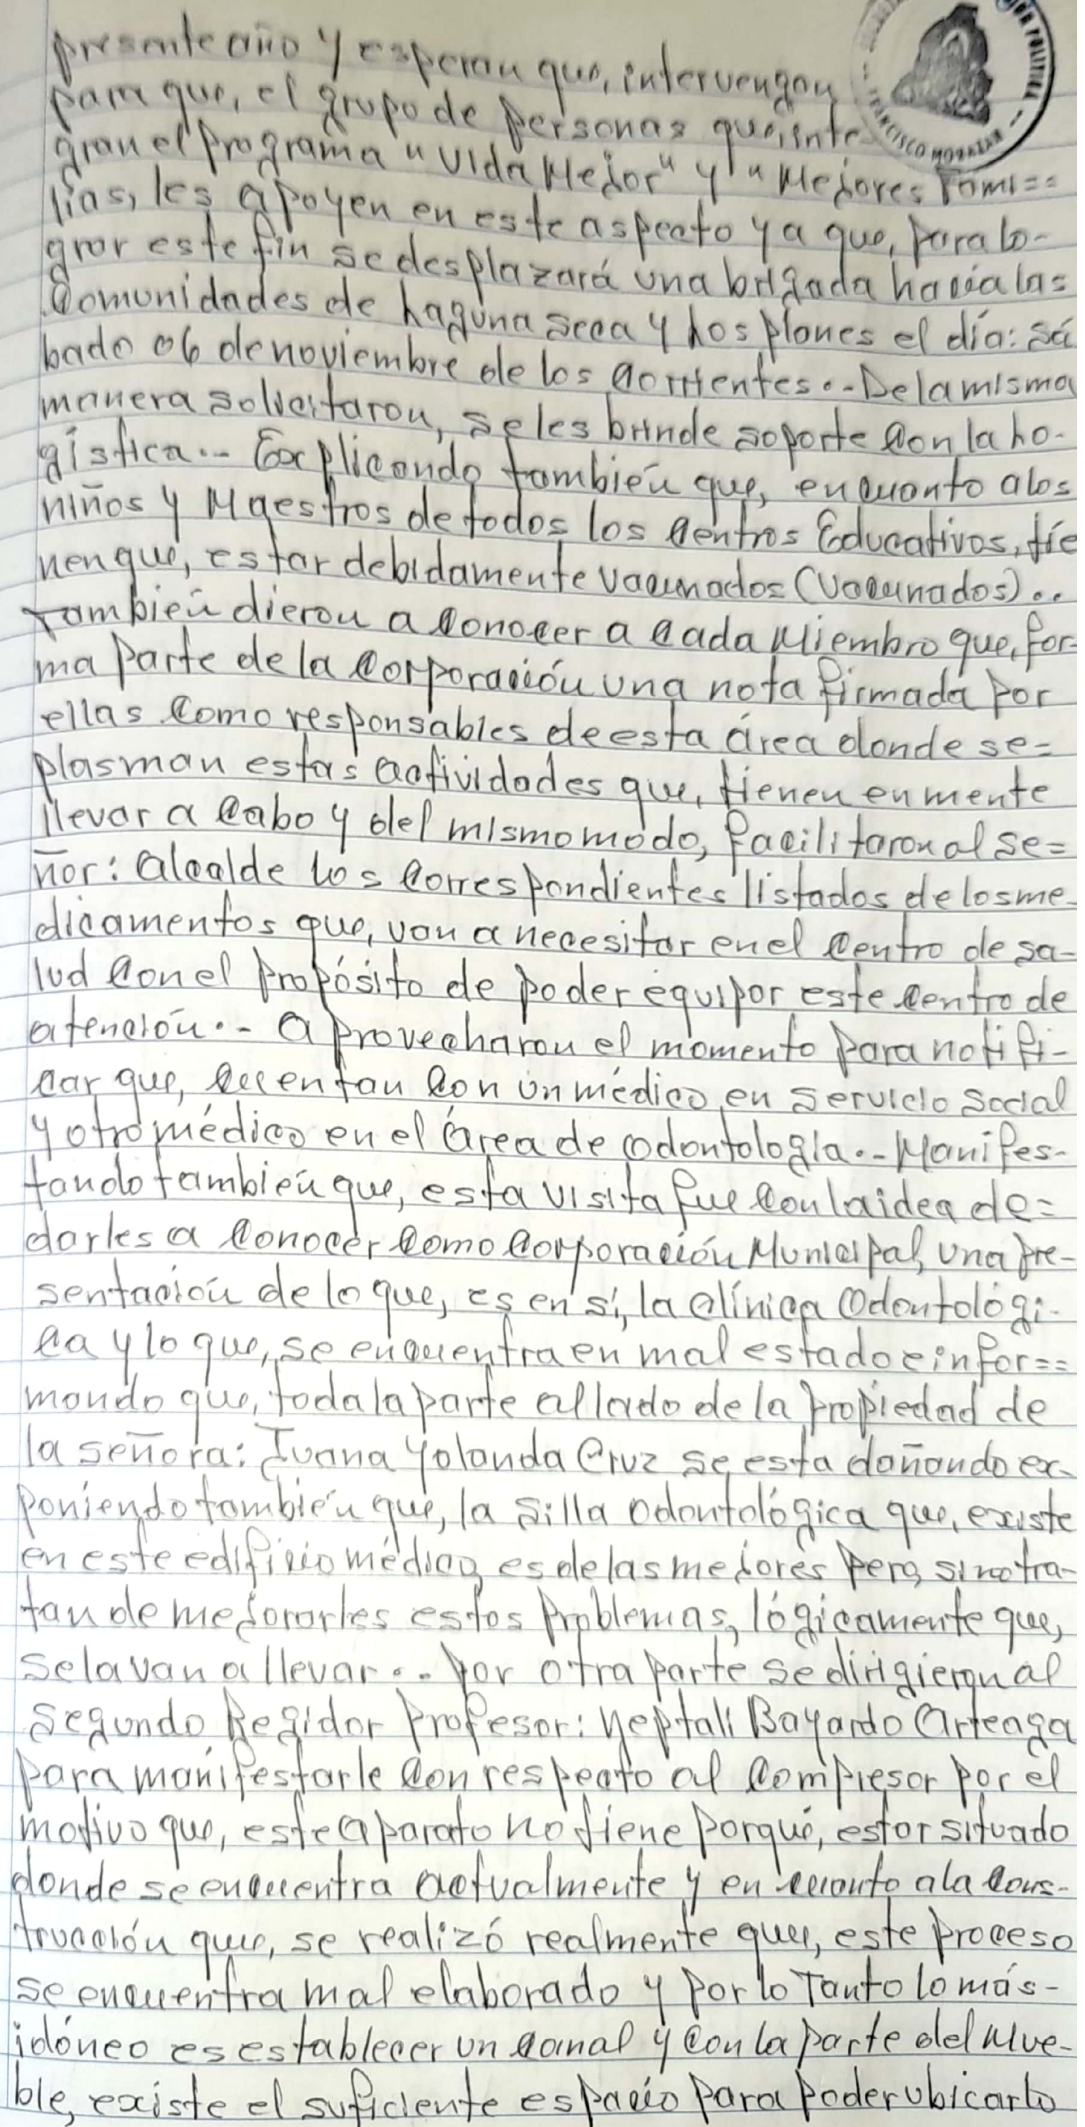 presente año y esperan que, intervengan
para que, el grupo de personas que, inte-
gran el programa "Vida Mejor" y "Mejores Fami==
lias, les apoyen en este aspecto ya que, para lo-
grar este fin se desplazará una brigada hacia las
Comunidades de Laguna Seca y Los Planes el día: Sá
bado 06 de noviembre de los corrientes.- De la misma
manera solicitaron, se les brinde soporte con la Lo-
gística.- Explicando también que, en cuanto a los
niños y Maestros de todos los Centros Educativos, tie
nen que, estar debidamente vacunados (Vacunados)..
También dieron a conocer a cada Miembro que, for-
ma Parte de la Corporación una nota firmada por
ellas como responsables de esta área donde se=
plasman estas actividades que, tienen en mente
llevar a cabo y del mismo modo, facilitaron al se=
ñor: Alcalde los correspondientes listados de los me-
dicamentos que, van a necesitar en el Centro de sa-
lud con el Propósito de poder equipar este centro de
atención.- Aprovecharon el momento para notifi-
car que, cuentan con un médico en servicio social
y otro médico en el área de Odontología.- Manifes-
tando también que, esta visita fue con la idea de=
darles a conocer como Corporación Municipal, una pre-
sentación de lo que, es en sí, la clínica Odontológi-
ca y lo que, se encuentra en mal estado e infor==
mando que, toda la parte al lado de la propiedad de
la señora: Juana Yolanda Cruz se esta dañando ex-
poniendo también que, la Silla Odontológica que, existe
en este edificio médico, es de las mejores pero, si no tra-
tan de mejorarles estos Problemas, lógicamente que,
se la van a llevar.. Por otra parte se dirigieron al
Segundo Regidor Profesor: Neptalí Bayardo Arteaga
para manifestarle con respecto al Compresor por el
motivo que, este aparato no tiene porqué, estar situado
donde se encuentra actualmente y en cuanto a la Cons-
trucción que, se realizó realmente que, este proceso
se encuentra mal elaborado y por lo Tanto lo más-
idóneo es establecer un canal y con la parte del Mue-
ble, existe el suficiente espacio para poder ubicarlo